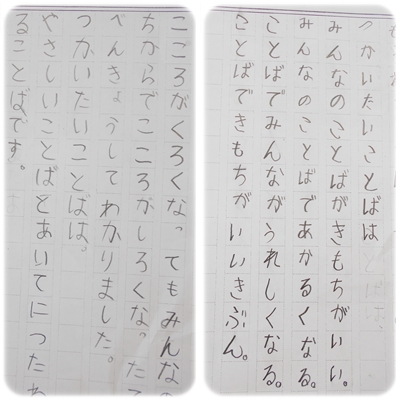 こころがくろくなってもみんなの
ちからでこころがしろくなったて
べんきょうしてわかりました。
つかいたいことばは。
やさしいことばとあいてにつたわ
ることばです。
つかいたいことばは
みんなのことばがきもちがいい。
みんなのことばであかるくなる。
ことばでみんながうれしくなる。
ことばできもちがいいきぶん。